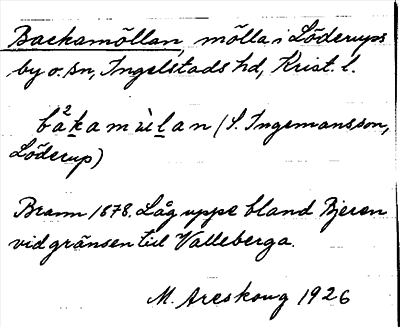 Backamöllan, mölla i Löderups
by o. sn, Ingelstads hd, Krist. l.
bắkamùlan (S. Ingemansson,
Löderup)
Brann 1878. Låg uppe bland Bjeren
vid gränsen till Valleberga.
M. Areskoug 1926